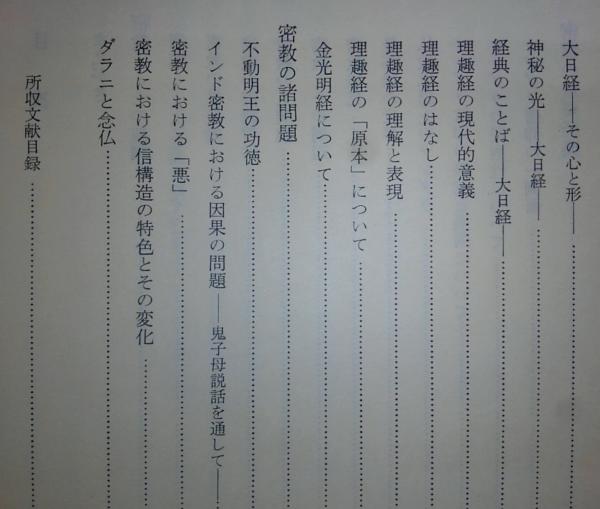 大日経――その心と形――……………
神秘の光――大日経――……………
経典のことば――大日経――……………
理趣経の現代的意義……………
理趣経のはなし……………
理趣経の理解と表現……………
理趣経の「原本」について……………
金光明経について……………
密教の諸問題……………
不動明王の功徳……………
インド密教における因果の問題――鬼子母説話を通して――……
密教における「悪」……………
密教における信構造の特色とその変化……………
ダラニと念仏……………
所収文献目録……………